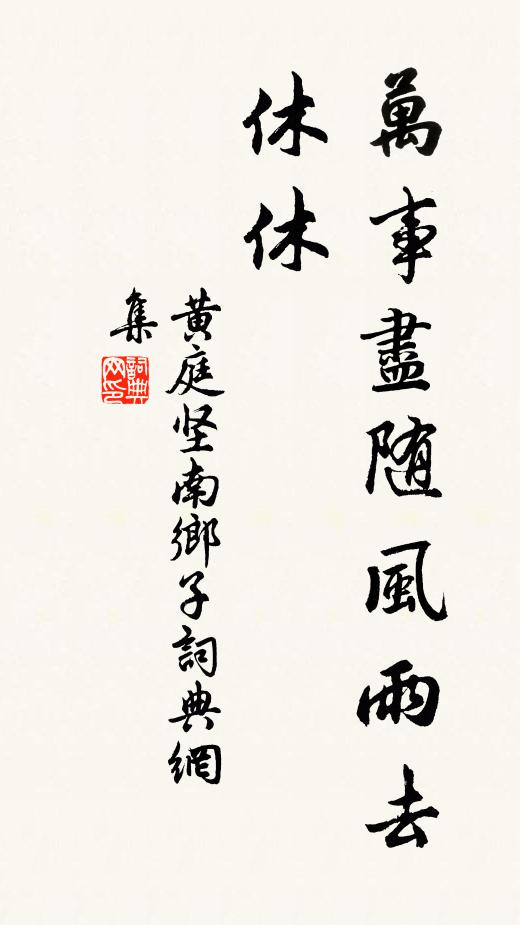 萬事盡随風雨去
休休
黄庭坚南鄉子詞典網
集
詞典
网印